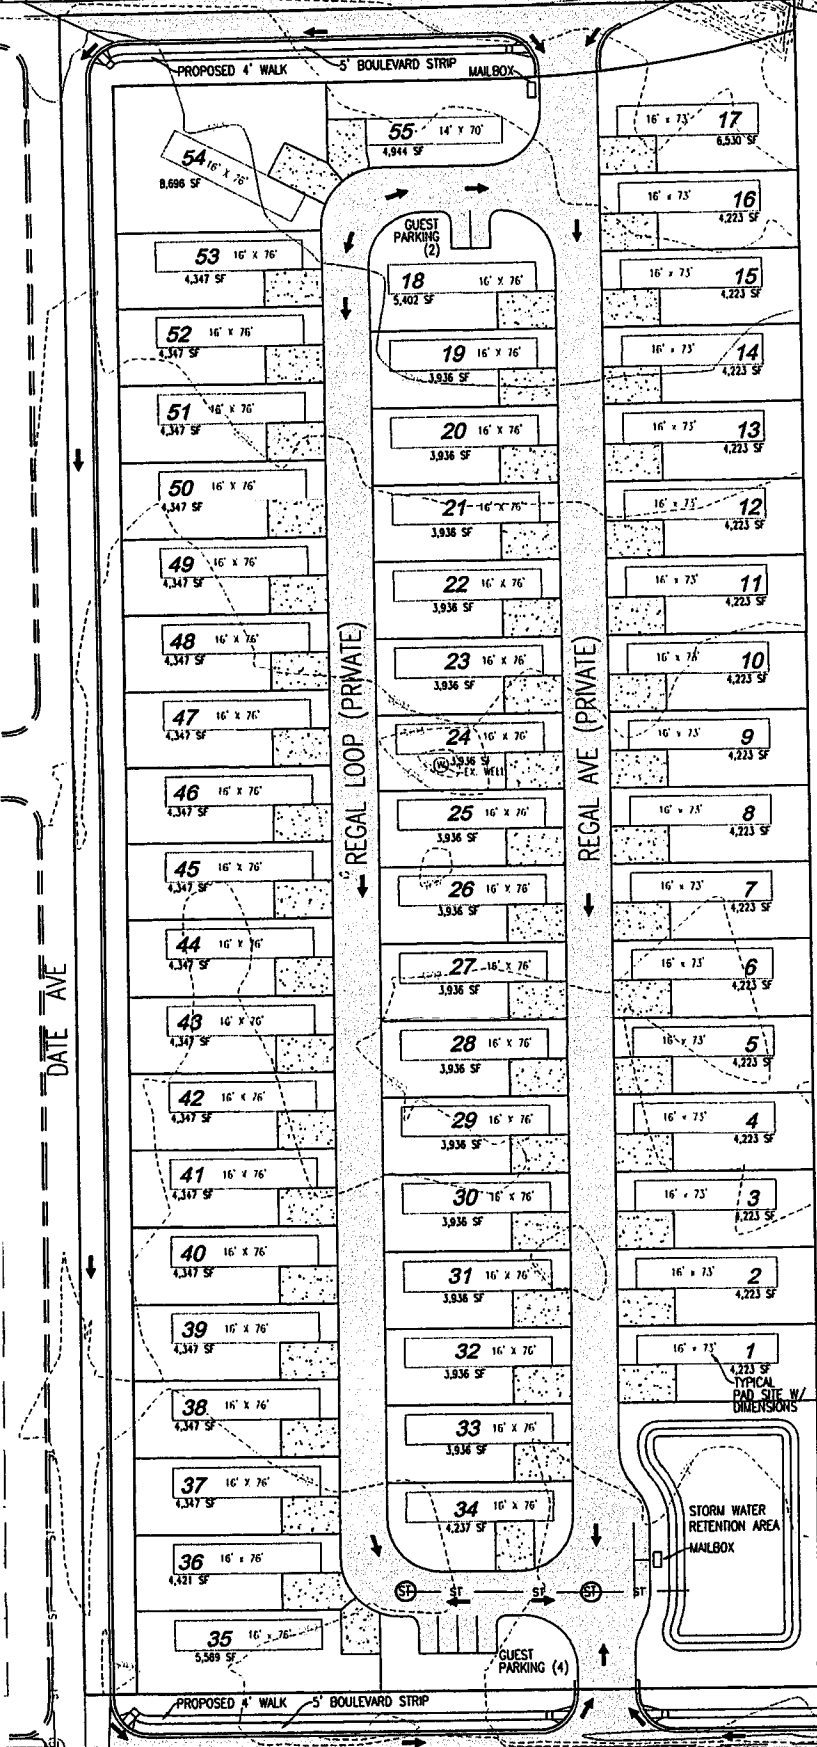 PROPOSED 4' WALK
5' BOULEVARD STRIP
MAILBOX
55 14' X 70'
4,944 SF
54 16' X 76'
8,696 SF
GUEST
PARKING
(2)
53 16' X 76'
4,347 SF
52 16' X 76'
4,347 SF
51 16' X 76'
4,347 SF
50 16' X 76'
4,347 SF
49 16' X 76'
4,347 SF
48 16' X 76'
4,347 SF
47 16' X 76'
4,347 SF
46 16' X 76'
4,347 SF
45 16' X 76'
4,347 SF
44 16' X 76'
4,347 SF
43 16' X 76'
4,347 SF
42 16' X 76'
4,347 SF
41 16' X 76'
4,347 SF
40 16' X 76'
4,347 SF
39 16' X 76'
4,347 SF
38 16' X 76'
4,347 SF
37 16' X 76'
4,347 SF
36 16' x 76'
4,421 SF
35 16' x 76'
5,589 SF
DATE AVE
REGAL LOOP (PRIVATE)
18 16' X 76'
5,402 SF
19 16' X 76'
3,936 SF
20 16' X 76'
3,936 SF
21 16' X 76'
3,936 SF
22 16' X 76'
3,936 SF
23 16' X 76'
3,936 SF
24 16' X 76'
3,936 SF
W
EX. WELL
25 16' X 76'
3,936 SF
26 16' X 76'
3,936 SF
27 16' X 76'
3,936 SF
28 16' X 76'
3,936 SF
29 16' X 76'
3,936 SF
30 16' X 76'
3,936 SF
31 16' X 76'
3,936 SF
32 16' X 76'
3,936 SF
33 16' X 76'
3,936 SF
34 16' X 76'
4,237 SF
REGAL AVE (PRIVATE)
16' x 73' 17
6,530 SF
16' x 73' 16
4,223 SF
16' x 73' 15
4,223 SF
16' x 73' 14
4,223 SF
16' x 73' 13
4,223 SF
16' x 73' 12
4,223 SF
16' x 73' 11
4,223 SF
16' x 73' 10
4,223 SF
16' x 73' 9
4,223 SF
16' x 73' 8
4,223 SF
16' x 73' 7
4,223 SF
16' x 73' 6
4,223 SF
16' x 73' 5
4,223 SF
16' x 73' 4
4,223 SF
16' x 73' 3
4,223 SF
16' x 73' 2
4,223 SF
16' x 73' 1
4,223 SF
TYPICAL
PAD SITE W/
DIMENSIONS
STORM WATER
RETENTION AREA
MAILBOX
ST ST ST ST ST
GUEST
PARKING (4)
PROPOSED 4' WALK
5' BOULEVARD STRIP